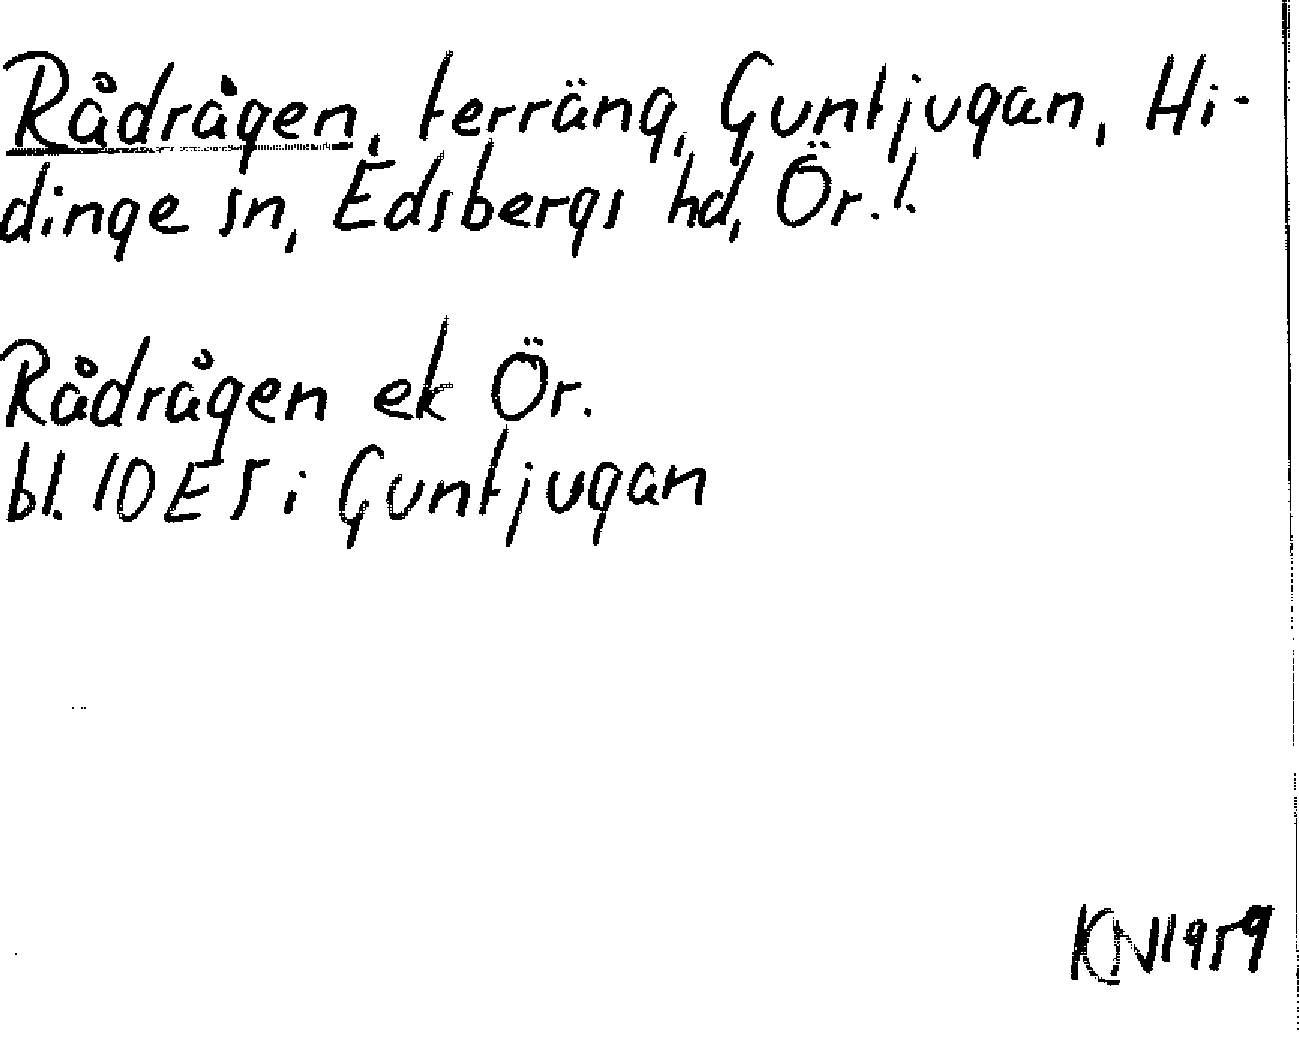 Rådrågen, terräng, Guntjugan, Hi-
dinge sn, Edsbergs hd, Ör. l.
Rådrågen ek Ör.
bl. 10E5 i Guntjugan
KN 1959